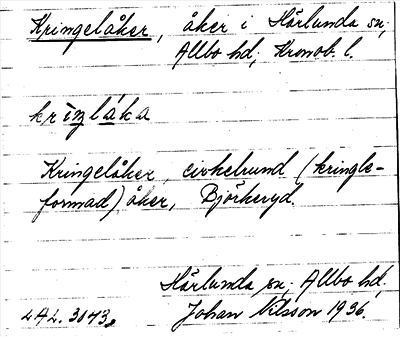 Kringelåker, åker i Härlunda sn,
Allbo hd, Kronob. l.
kriŋláka
Kringelåker, cirkelrund (kringle-
formad) åker, Björkeryd.
Härlunda sn, Allbo hd.
LAL. 3043, Johan Nilsson 1936.